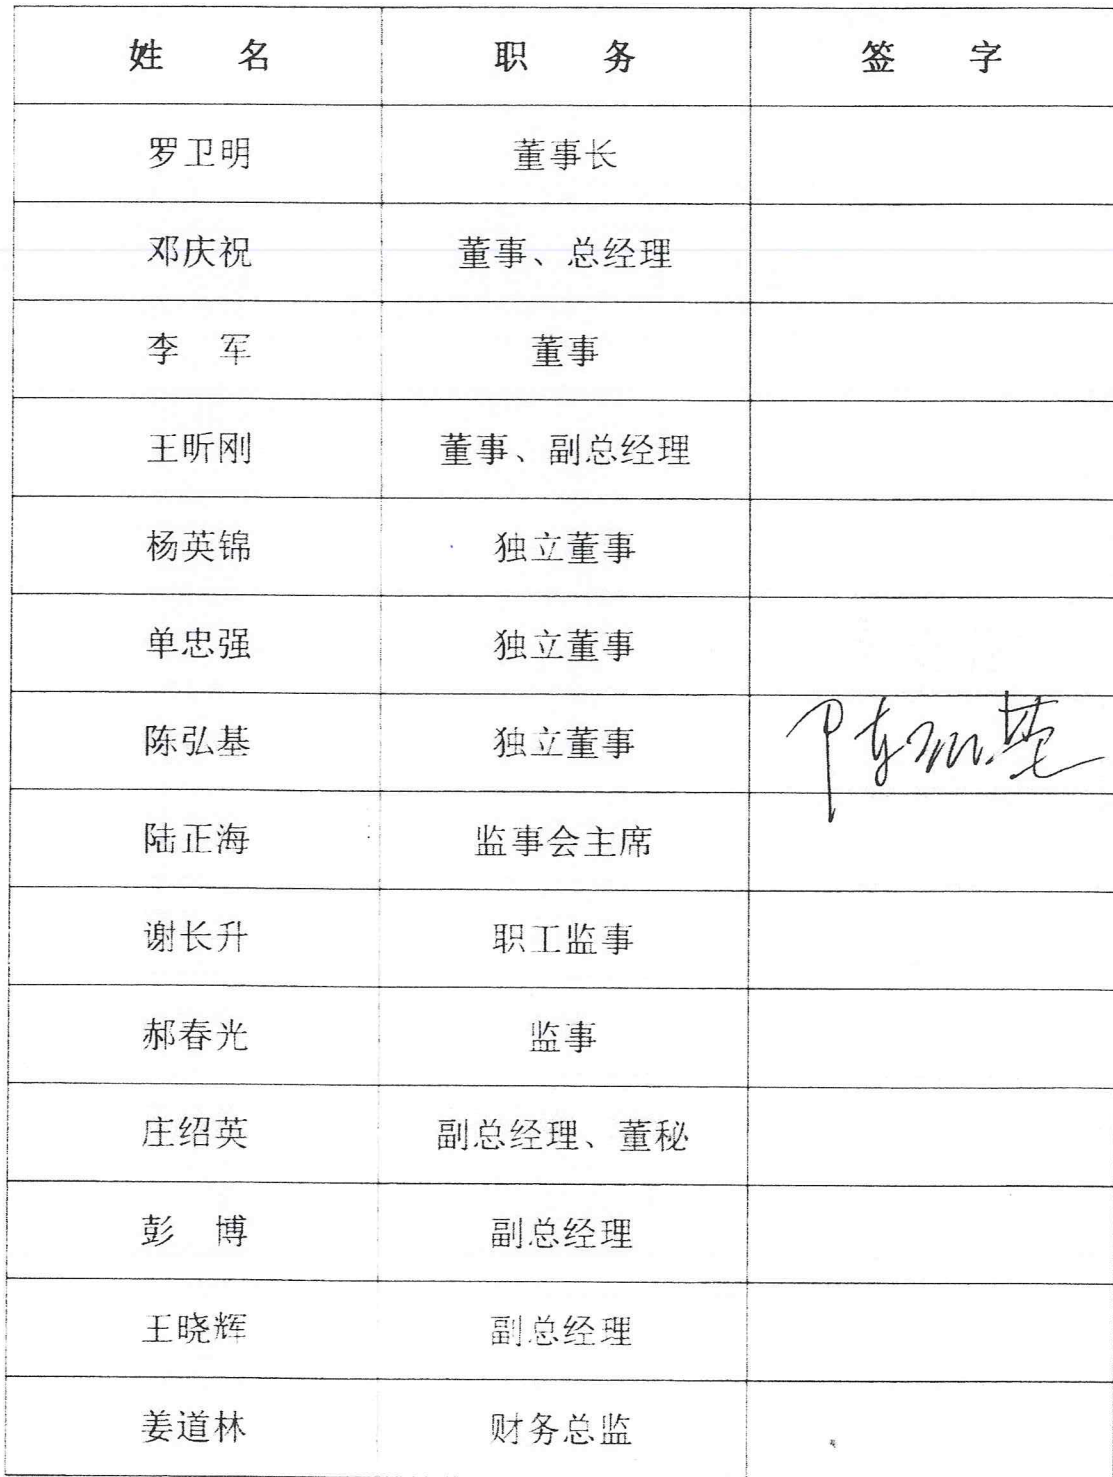 姓 名 职 务 签 字
罗卫明 董事长
邓庆祝 董事、总经理
李 军 董事
王昕刚 董事、副总经理
杨英锦 独立董事
单忠强 独立董事
陈弘基 独立董事 陈弘基
陆正海 监事会主席
谢长升 职工监事
郝春光 监事
庄绍英 副总经理、董秘
彭 博 副总经理
王晓辉 副总经理
姜道林 财务总监